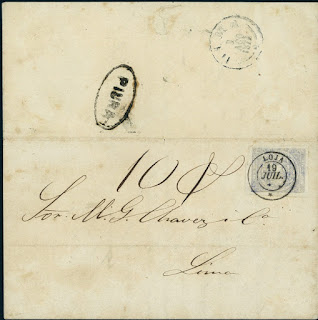 PIURA
LOJA
19
JUIL.
10
Sor. M. G. Chavez i Co.
Lima